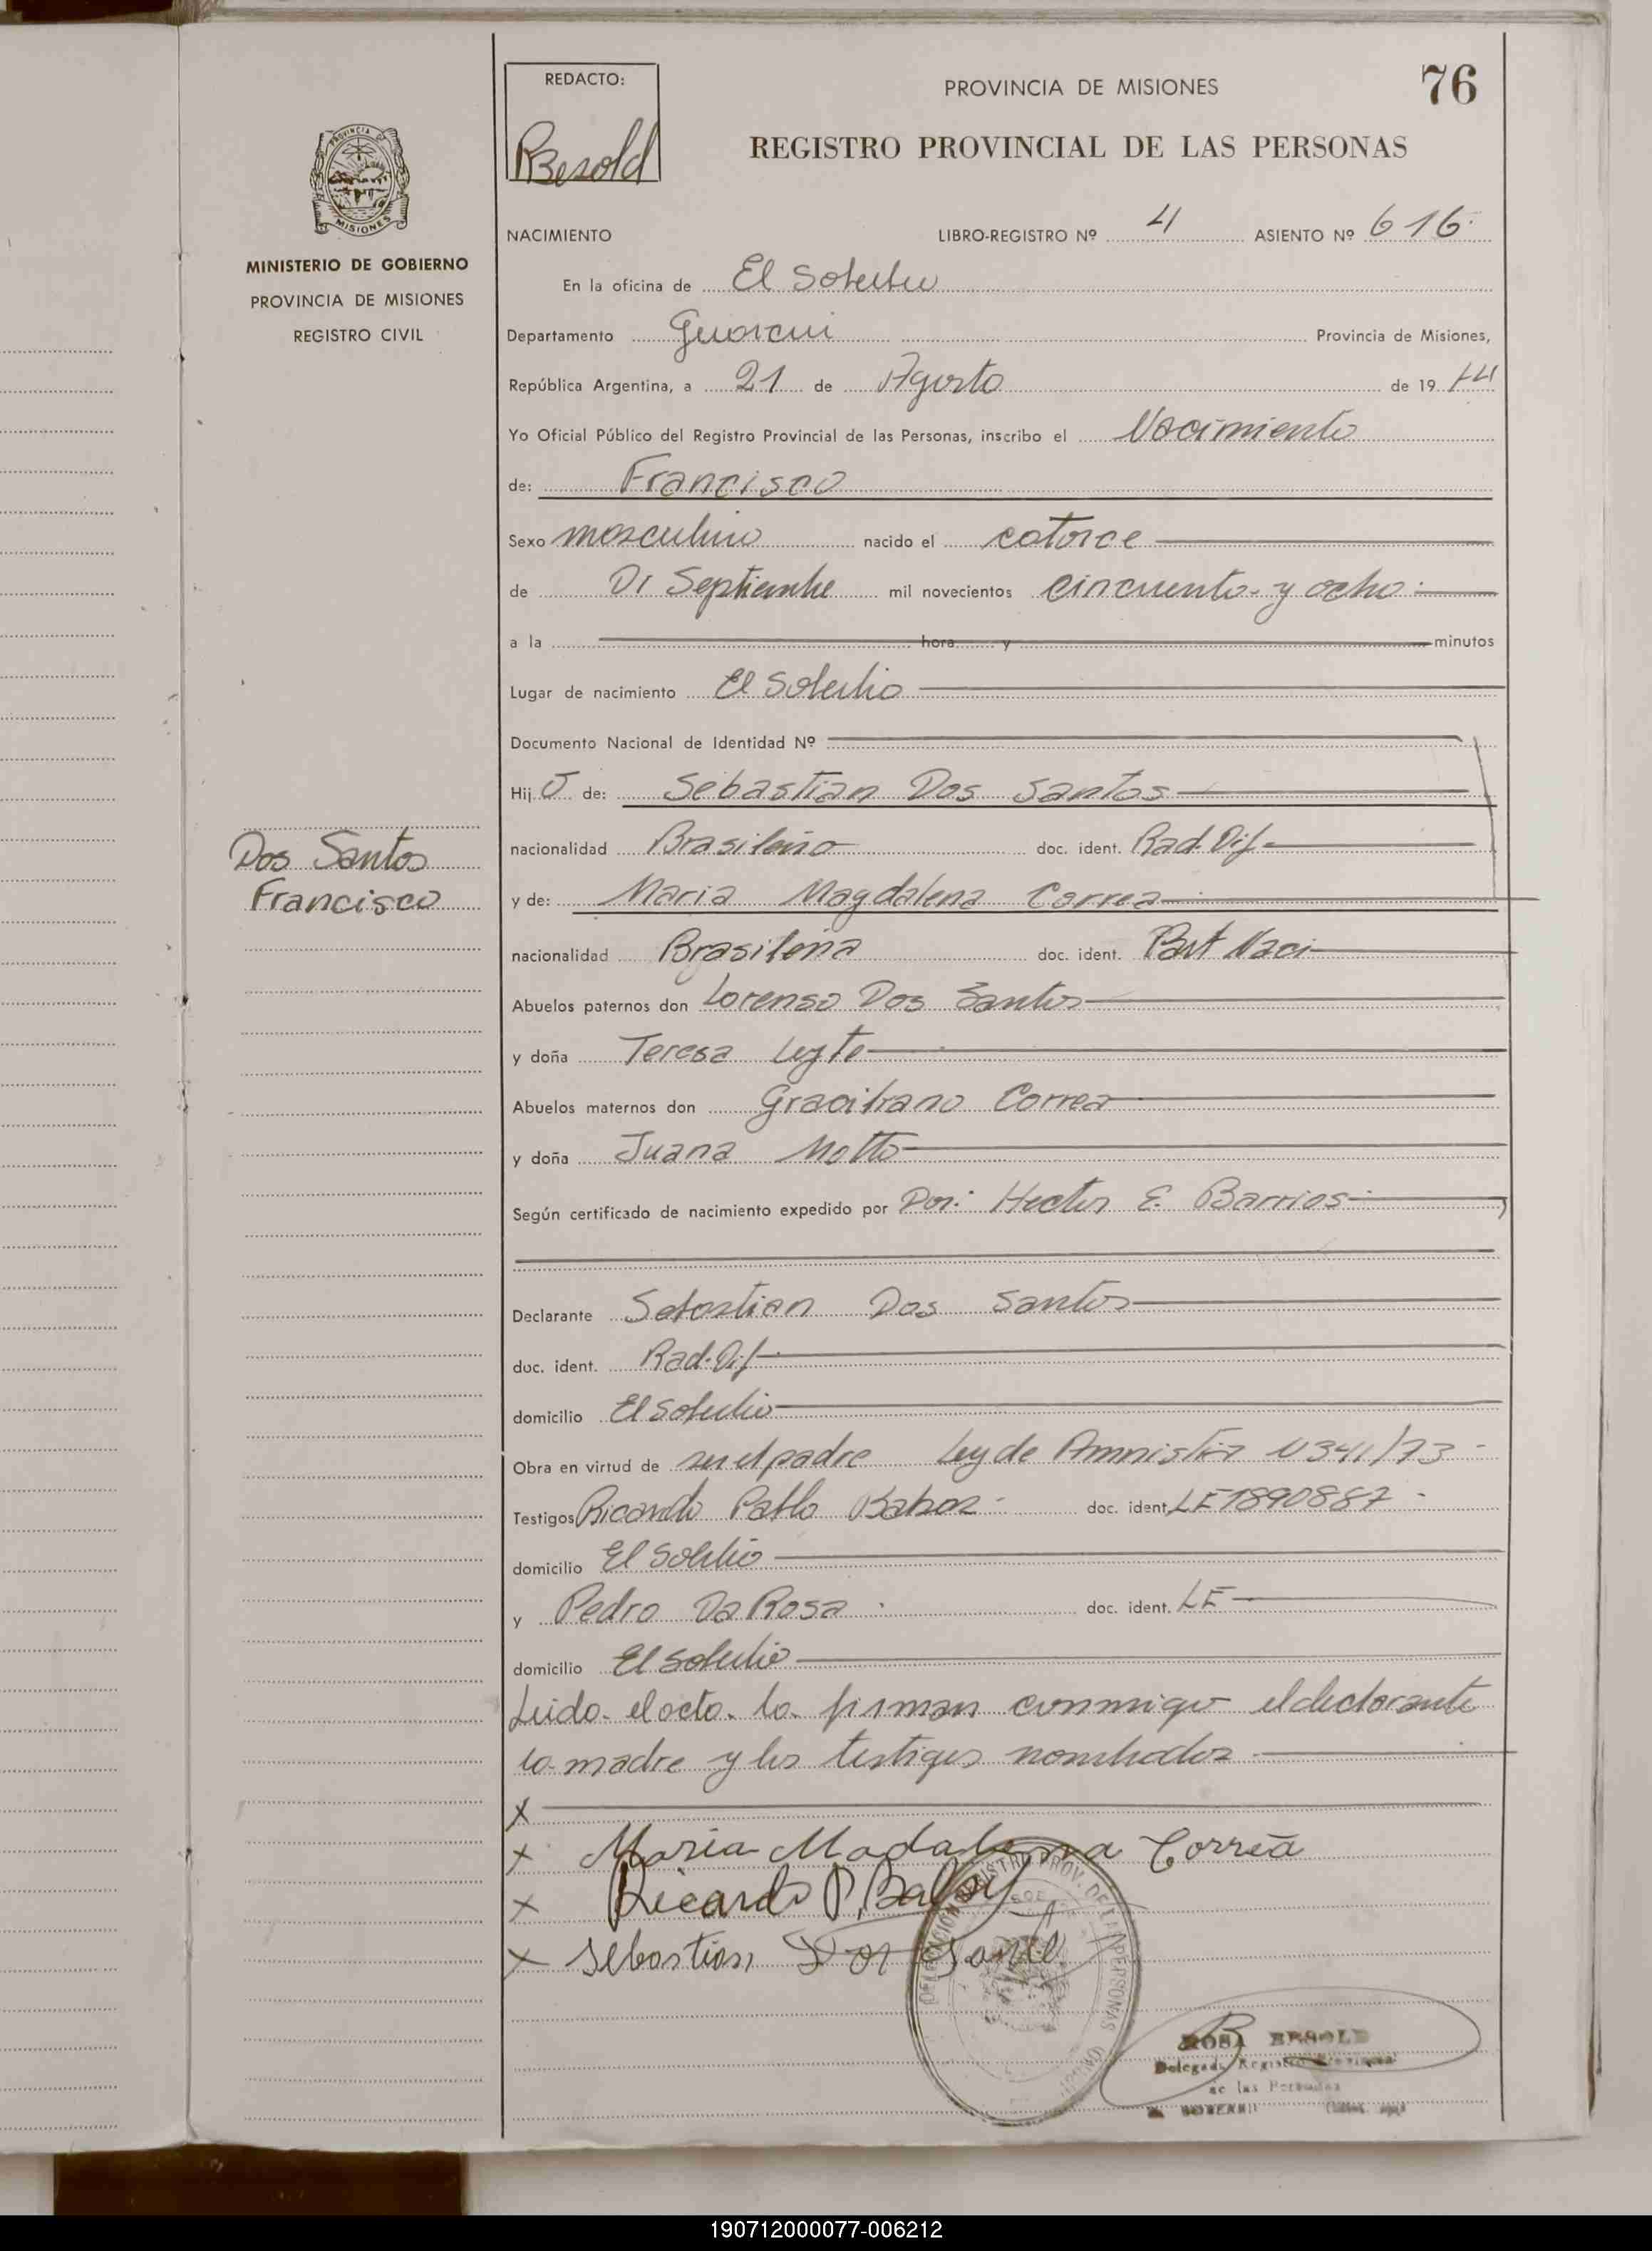 76
REDACTO:
PROVINCIA DE MISIONES
Besold
REGISTRO PROVINCIAL DE LAS PERSONAS
PROVINCIA DE
MISIONES
NACIMIENTO LIBRO-REGISTRO Nº 4 ASIENTO Nº 616
MINISTERIO DE GOBIERNO
PROVINCIA DE MISIONES
REGISTRO CIVIL
En la oficina de El Soberbio
Departamento Guarani Provincia de Misiones,
República Argentina, a 21 de Agosto de 19 74
Yo Oficial Público del Registro Provincial de las Personas, inscribo el Nacimiento
de: Francisco
Sexo masculino nacido el catorce
de Di Septiembre mil novecientos cincuenta y ocho
a la hora y minutos
Lugar de nacimiento El Soberbio
Documento Nacional de Identidad Nº
Hij o de: Sebastian Dos Santos
Dos Santos
Francisco
nacionalidad Brasileño doc. ident. Rad. Dif.
y de: Maria Magdalena Correa
nacionalidad Brasileña doc. ident. Part Naci
Abuelos paternos don Lorenso Dos Santos
y doña Teresa Leyte
Abuelos maternos don Correa
y doña Juana Motto
Según certificado de nacimiento expedido por Por: Hector E. Barrios
Declarante Sebastian Dos Santos
doc. ident. Rad. Dif
domicilio El Soberbio
Obra en virtud de ser el padre Ley de Amnistia N 341/73
Testigos Ricardo Pablo doc. ident. LE 7890887
domicilio El Soberbio
y Pedro Da Rosa doc. ident. LE
domicilio El Soberbio
Leida el acta la firman conmigo el declarante
la madre y los testigos nombrados
X
X Maria Madalena Correa
X Ricardo P.
X Sebastian Dos
DELEGACION REGISTRO PROV. DE LAS PERSONAS
ROSA BESOLD
Delegada Registro Provincial
de las Personas
190712000077-006212